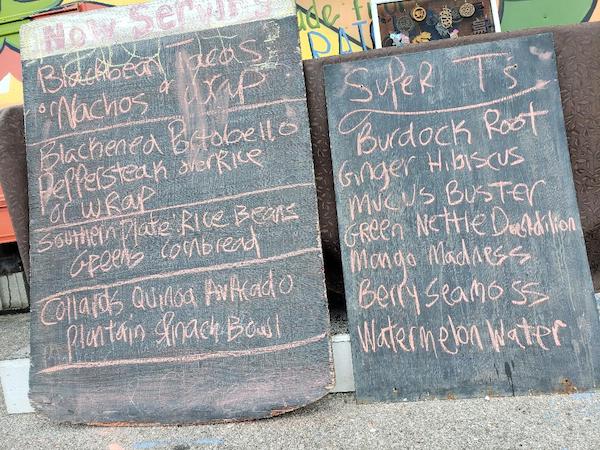 Now Serving
Blackbean Tacos
Nachos or Wrap
Blackened Portobello
Peppersteak over Rice
or Wrap
Southern Plate: Rice Beans
Greens Cornbread
Collards Quinoa Avacado
Plantain Spinach Bowl
Super T's
Burdock Root
Ginger Hibiscus
Mucus Buster
Green Nettle Dandilion
Mango Madness
Berry Seamoss
Watermelon Water